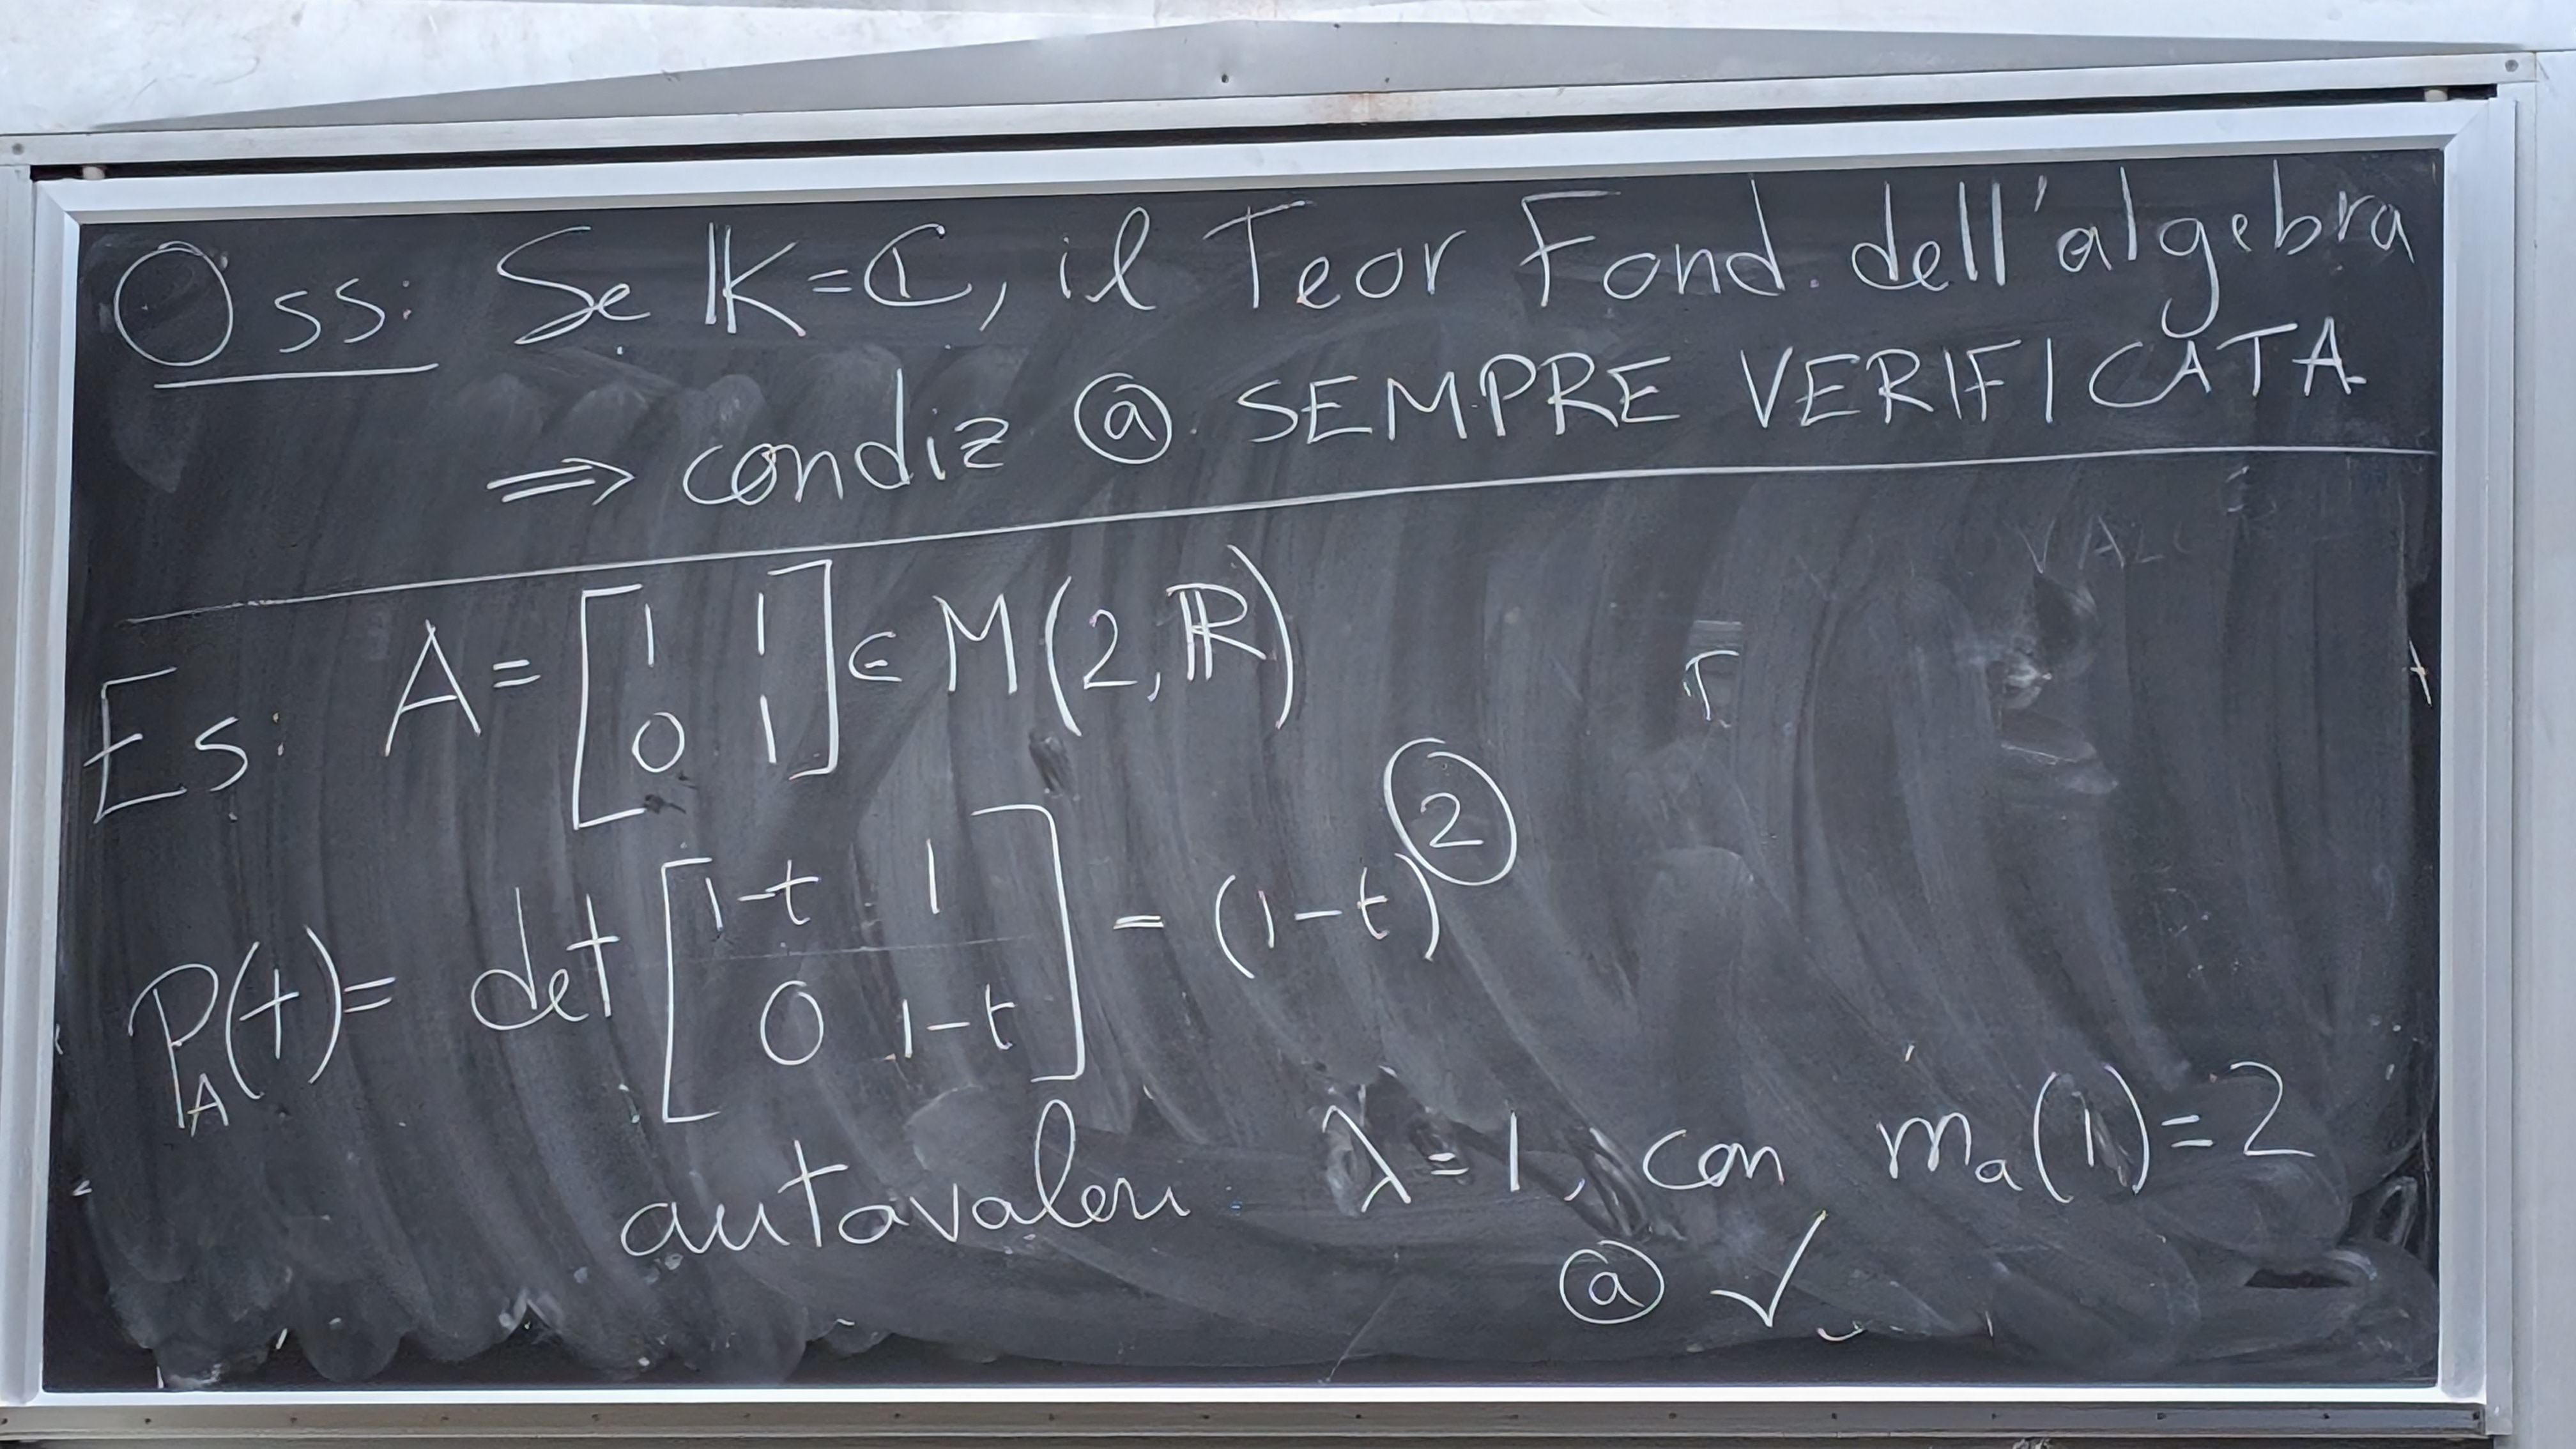 Oss: Se 𝕂=ℂ, il Teor Fond. dell'algebra
⟹ condiz ⓐ SEMPRE VERIFICATA
Es: A = [1 1; 0 1] ∈ M(2,ℝ)
P_A(t) = det [1-t 1; 0 1-t] = (1-t)^②
autovalori λ=1, con m_a(1)=2
ⓐ ✓